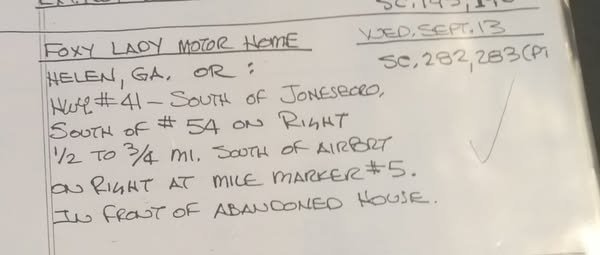 FOXY LADY MOTOR HOME
WED. SEPT. 13
HELEN, GA. OR :
SC. 282, 283 (PT
HWY # 41 - SOUTH OF JONESBORO,
SOUTH OF # 54 ON RIGHT
1/2 TO 3/4 MI. SOUTH OF AIRPORT
ON RIGHT AT MILE MARKER # 5.
IN FRONT OF ABANDONED HOUSE.